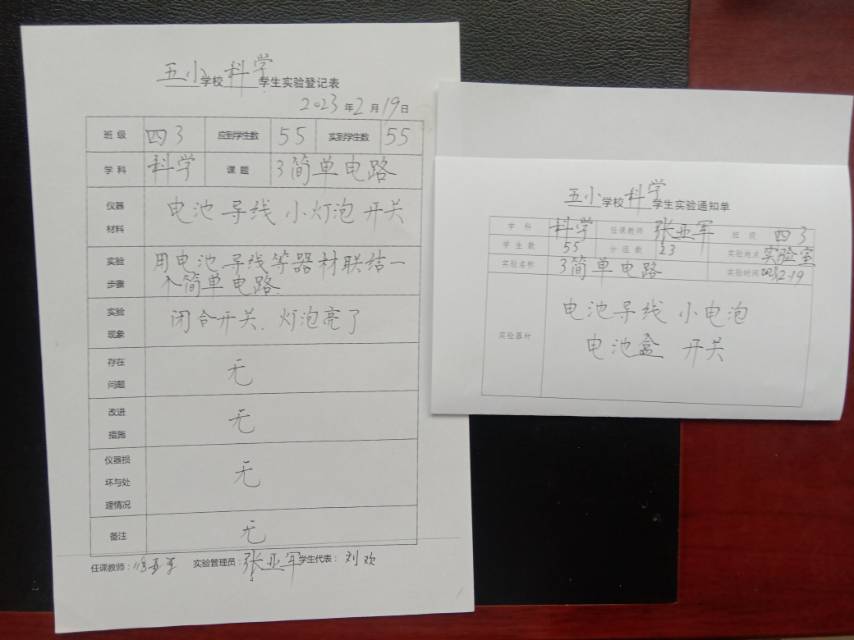 五小学校科学学生实验登记表
2023年2月19日
班级 四3 应到学生数 55 实到学生数 55
学科 科学 课题 3简单电路
仪器材料 电池 导线 小灯泡 开关
实验步骤 用电池 导线等器材联结一
个简单电路
实验现象 闭合开关.灯泡亮了
存在问题 无
改进措施 无
仪器损坏与处理情况 无
备注 无
任课教师: 实验管理员:张亚军 学生代表:刘欢
五小学校科学学生实验通知单
学科 科学 任课教师 张亚军 班级 四3
学生数 55 分组数 23 实验地点 实验室
实验名称 3简单电路 实验时间 2023.2.19
实验器材 电池导线 小电泡
电池盒 开关